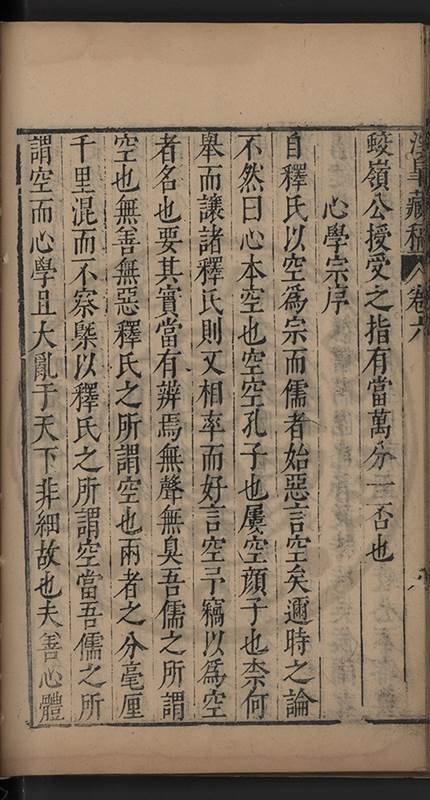 涇皐藏稿 卷六
鮻嶺公授受之指有當萬分一否也
心學宗序
自釋氏以空爲宗而儒者始惡言空矣邇時之論
不然曰心本空也空空孔子也屢空顔子也柰何
舉而讓諸釋氏則又相率而好言空予竊以爲空
者名也要其實當有辨焉無聲無臭吾儒之所謂
空也無善無惡釋氏之所謂空也兩者之分毫厘
千里混而不察槩以釋氏之所謂空當吾儒之所
謂空而心學且大亂于天下非細故也夫善心體